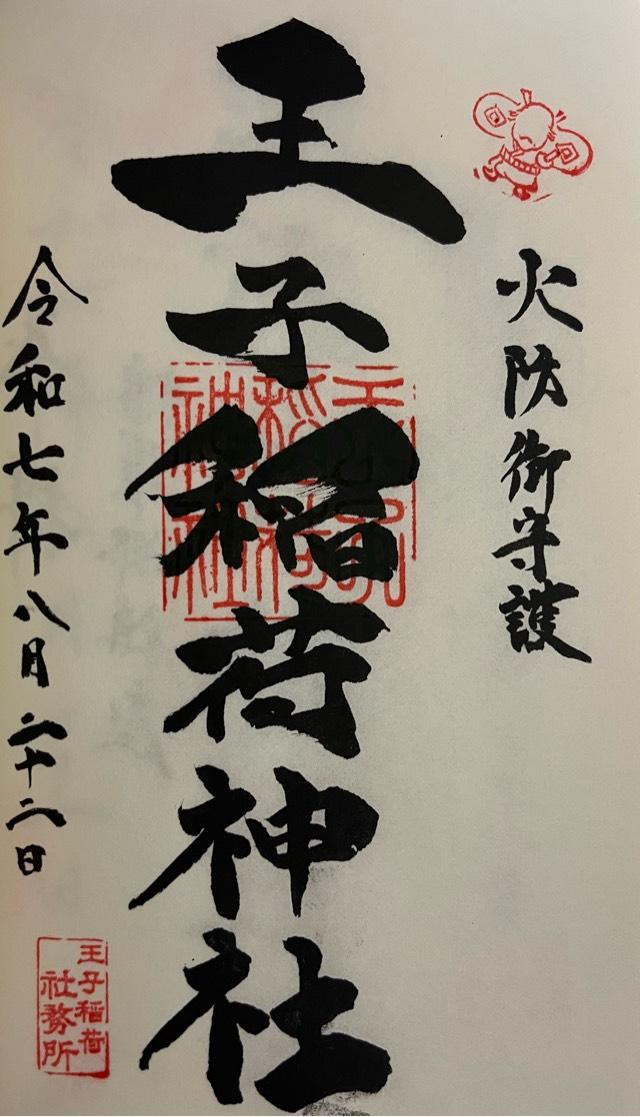 火防御守護
王子稲荷神社
王子稲荷神社
令和七年八月二十二日
王子稲荷
社務所